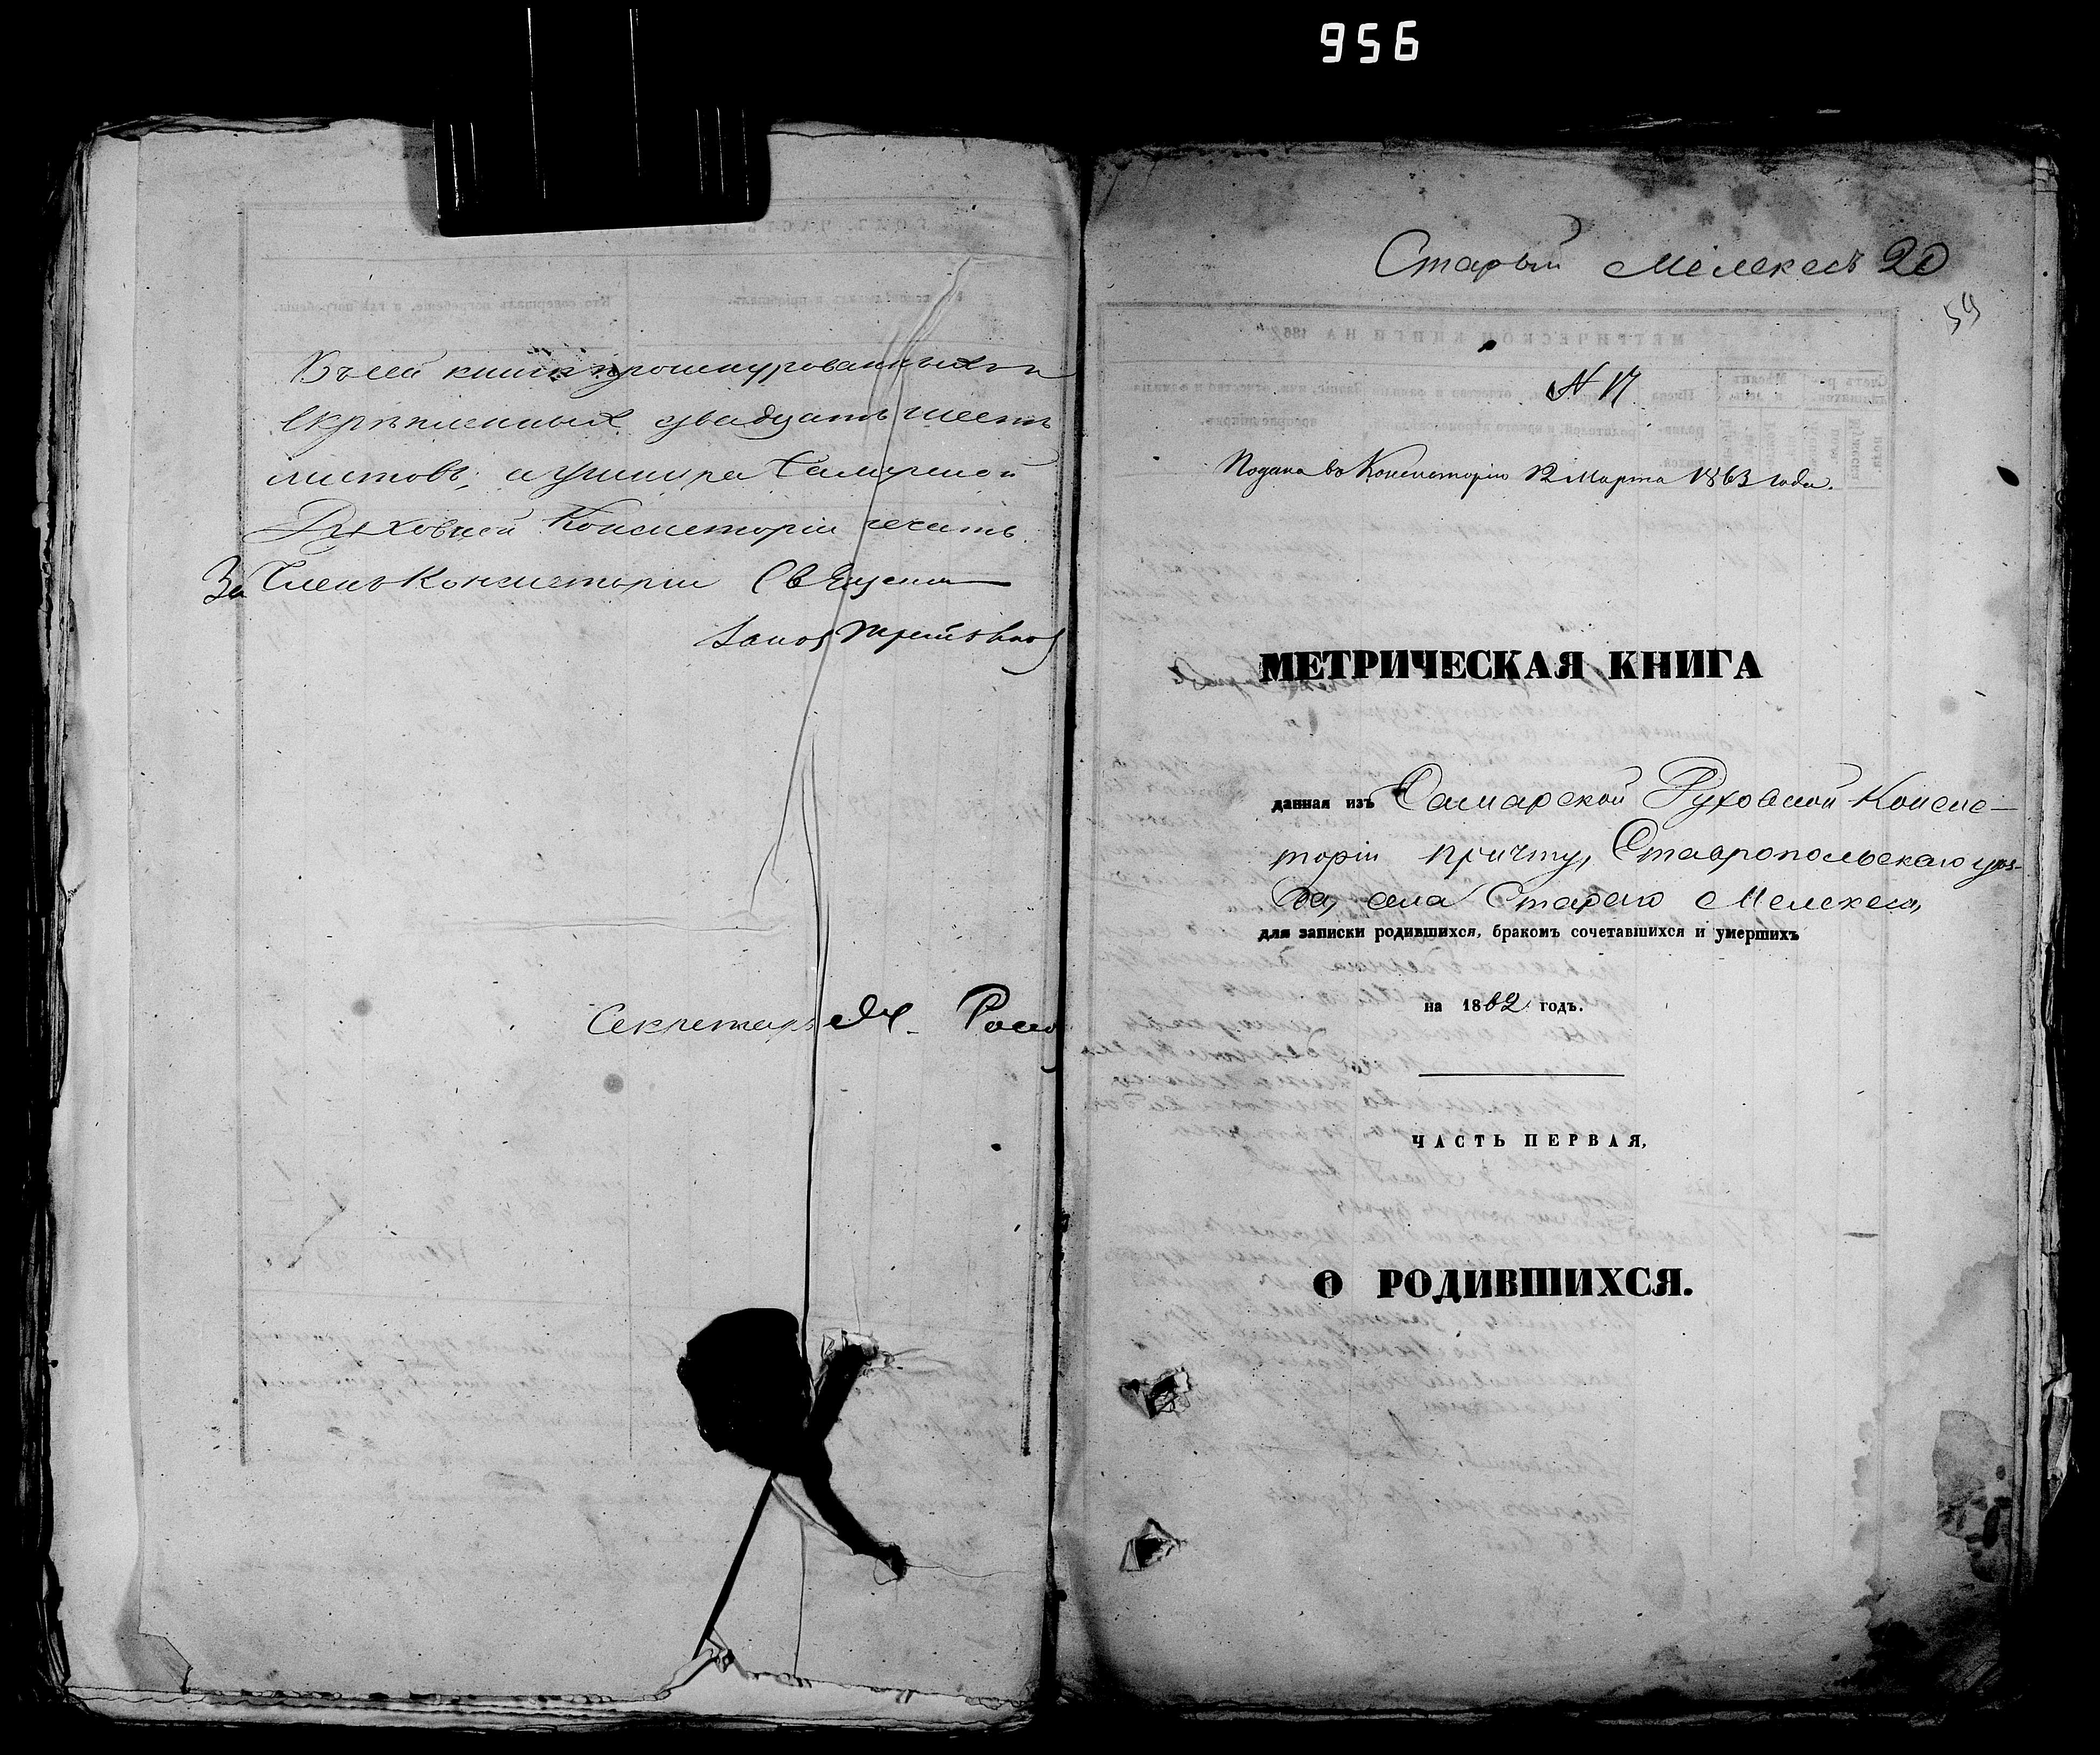 956
Въ сей книгѣ прошнурованныхъ и
скрѣпленныхъ двадцать шесть
листовъ; а у шнура Самарской
Духовной Консисторіи печать.
За Членъ Консисторіи Священникъ
Секретарь
Старый Мелекесъ 20
59
N 17
Подана въ Консисторію 12 Марта 1863 года.
МЕТРИЧЕСКАЯ КНИГА
данная изъ Самарской Духовной Консис-
торіи причту, Ставропольскаго уѣз-
да, села Стараго Мелекеса,
для записки родившихся, бракомъ сочетавшихся и умершихъ
на 1862 годъ.
ЧАСТЬ ПЕРВАЯ,
О РОДИВШИХСЯ.